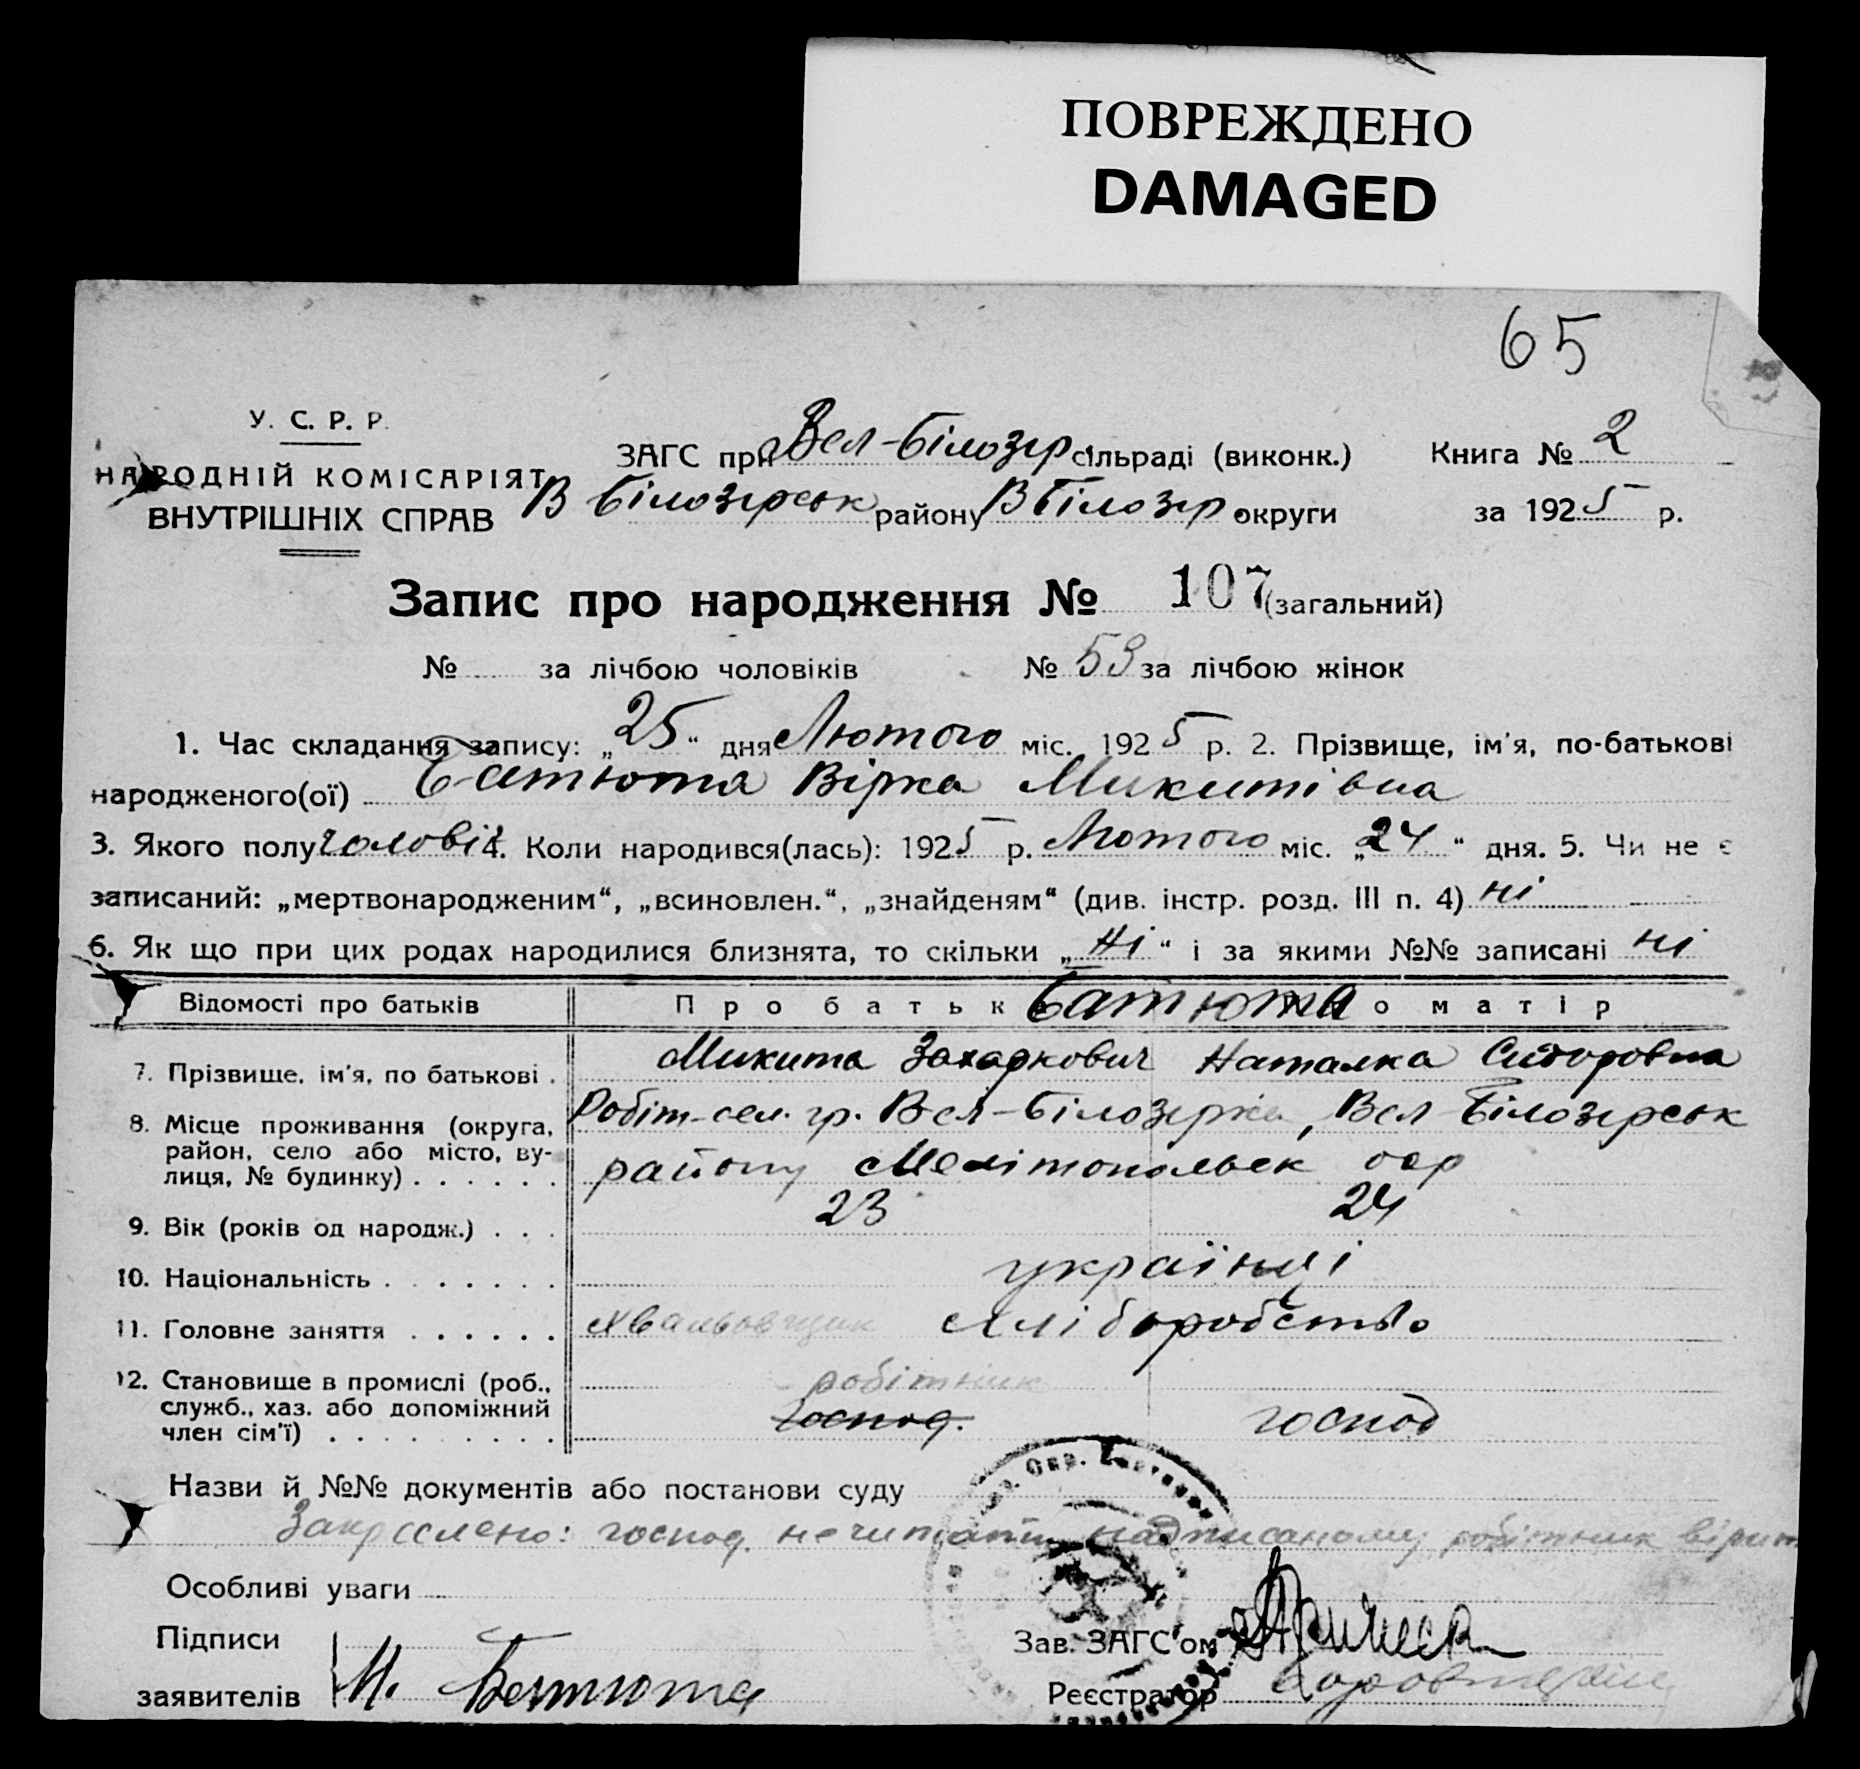 ПОВРЕЖДЕНО
DAMAGED
65
У. С. Р. Р.
НАРОДНІЙ КОМІСАРІЯТ
ВНУТРІШНІХ СПРАВ
ЗАГС при Вел-Білозер сільраді (виконк.) Книга № 2
В Білозерськ району В Білозер округи за 1925 р.
Запис про народження № 107 (загальний)
№ за лічбою чоловіків № 53 за лічбою жінок
1. Час складання запису: „25“ дня Лютого міс. 1925 р. 2. Прізвище, ім'я, по-батькові
народженого(ої) Батюта Вірка Микитівна
3. Якого полу чоловіч 4. Коли народився(лась): 1925 р. Лютого міс. „24“ дня. 5. Чи не є
записаний: „мертвонародженим“, „всиновлен.“, „знайденям“ (див. інстр. розд. III п. 4) ні
6. Як що при цих родах народилися близнята, то скільки „Ні“ і за якими №№ записані ні
Відомості про батьків Про батьк Батюта о матір
7. Прізвище, ім'я, по батькові . Микита Захаркович Наталка Сидоровна
8. Місце проживання (округа, район, село або місто, вулиця, № будинку) . . . . . . Робіт-сел. гр. Вел-Білозерка, Вел Білозерськ
району Мелітопольск окр
9. Вік (років од народж.) . . . 23 24
10. Національність . . . . . . . українці
11. Головне заняття . . . . . . хліборобство
12. Становище в промислі (роб., служб., хаз. або допоміжний член сім'ї) . . . . . . . . . робітник
господ. господ
Назви й №№ документів або постанови суду
Закреслено: господ. не читати надписаному робітник вірит
Особливі уваги
Підписи
заявителів М. Батюта
Зав. ЗАГС'ом
Реєстратор